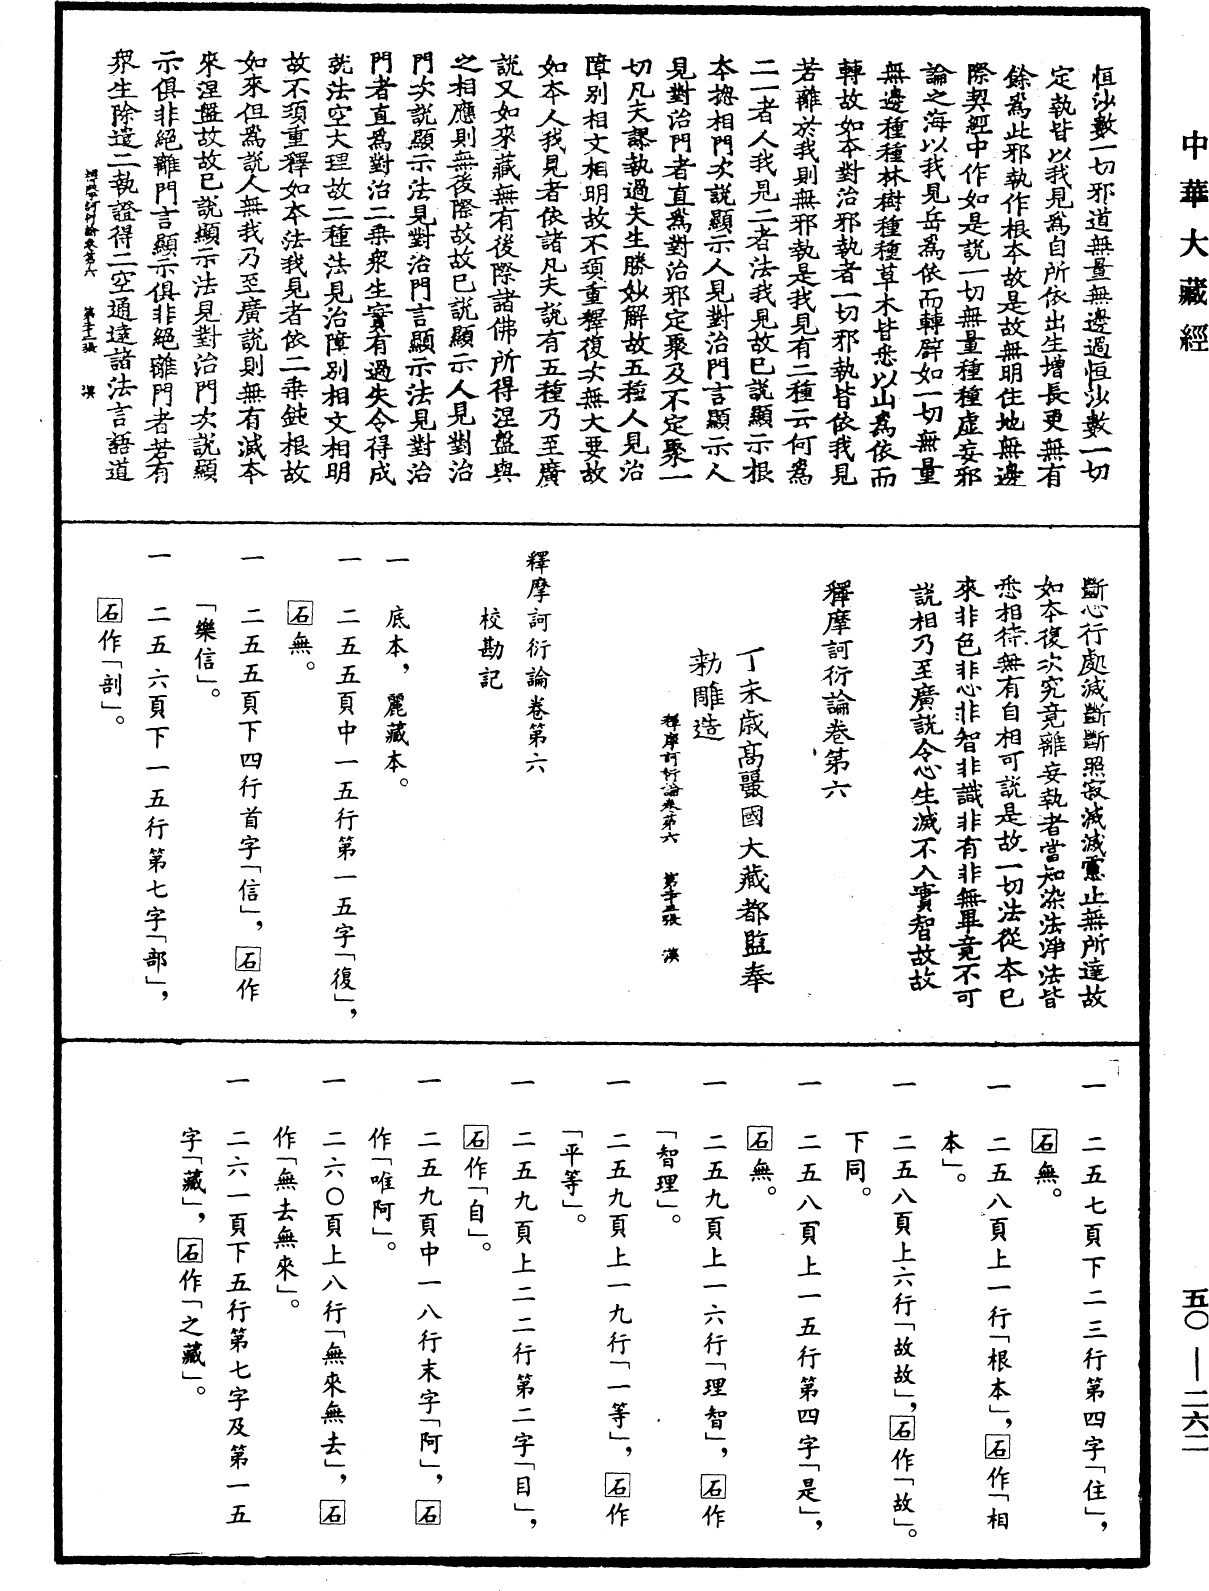 中華大藏經
恒沙數一切邪道無量無邊過恒沙數一切
定執皆以我見爲自所依出生增長更無有
餘爲此邪執作根本故是故無明住地無邊
際契經中作如是說一切無量種種虛妄邪
論之海以我見岳爲依而轉辟如一切無量
無邊種種林樹種種草木皆悉以山爲依而
轉故如本對治邪執者一切邪執皆依我見
若離於我則無邪執是我見有二種云何爲
二一者人我見二者法我見故已說顯示根
本揔相門次說顯示人見對治門言顯示人
見對治門者直爲對治邪定聚及不定聚一
切凡夫謬執過失生勝妙解故五種人見治
障別相文相明故不須重釋復次無大要故
如本人我見者依諸凡夫說有五種乃至廣
說又如來藏無有後際諸佛所得涅盤與
之相應則無後際故故已說顯示人見對治
門次說顯示法見對治門言顯示法見對治
門者直爲對治二乘衆生實有過失令得成
就法空大理故二種法見治障別相文相明
故不須重釋如本法我見者依二乘鈍根故
如來但爲說人無我乃至廣說則無有滅本
來涅盤故故已說顯示法見對治門次說顯
示俱非絕離門言顯示俱非絕離門者若有
衆生除遣二執證得二空通達諸法言語道
斷心行處滅斷斷照寂滅滅慮止無所達故
如本復次究竟離妄執者當知染法淨法皆
悉相待無有自相可說是故一切法從本已
來非色非心非智非識非有非無畢竟不可
說相乃至廣說令心生滅不入實智故故
釋摩訶衍論卷第六
丁未歲高麗國大藏都監奉
勅雕造
釋摩訶衍論卷第六
釋摩訶衍論卷第六
校勘記
一　底本，麗藏本。
一　二五五頁中一五行第一五字「復」，
石無。
一　二五五頁下四行首字「信」，石作
「樂信」。
一　二五六頁下一五行第七字「部」，
石作「剖」。
一　二五七頁下二三行第四字「住」，
石無。
一　二五八頁上一行「根本」，石作「相
本」。
一　二五八頁上六行「故故」，石作「故」。
下同。
一　二五八頁上一五行第四字「是」，
石無。
一　二五九頁上一六行「理智」，石作
「智理」。
一　二五九頁上一九行「一等」，石作
「平等」。
一　二五九頁上二二行第二字「目」，
石作「自」。
一　二五九頁中一八行末字「阿」，石
作「唯阿」。
一　二六〇頁上八行「無來無去」，石
作「無去無來」。
一　二六一頁下五行第七字及第一五
字「藏」，石作「之藏」。
五〇——二六二